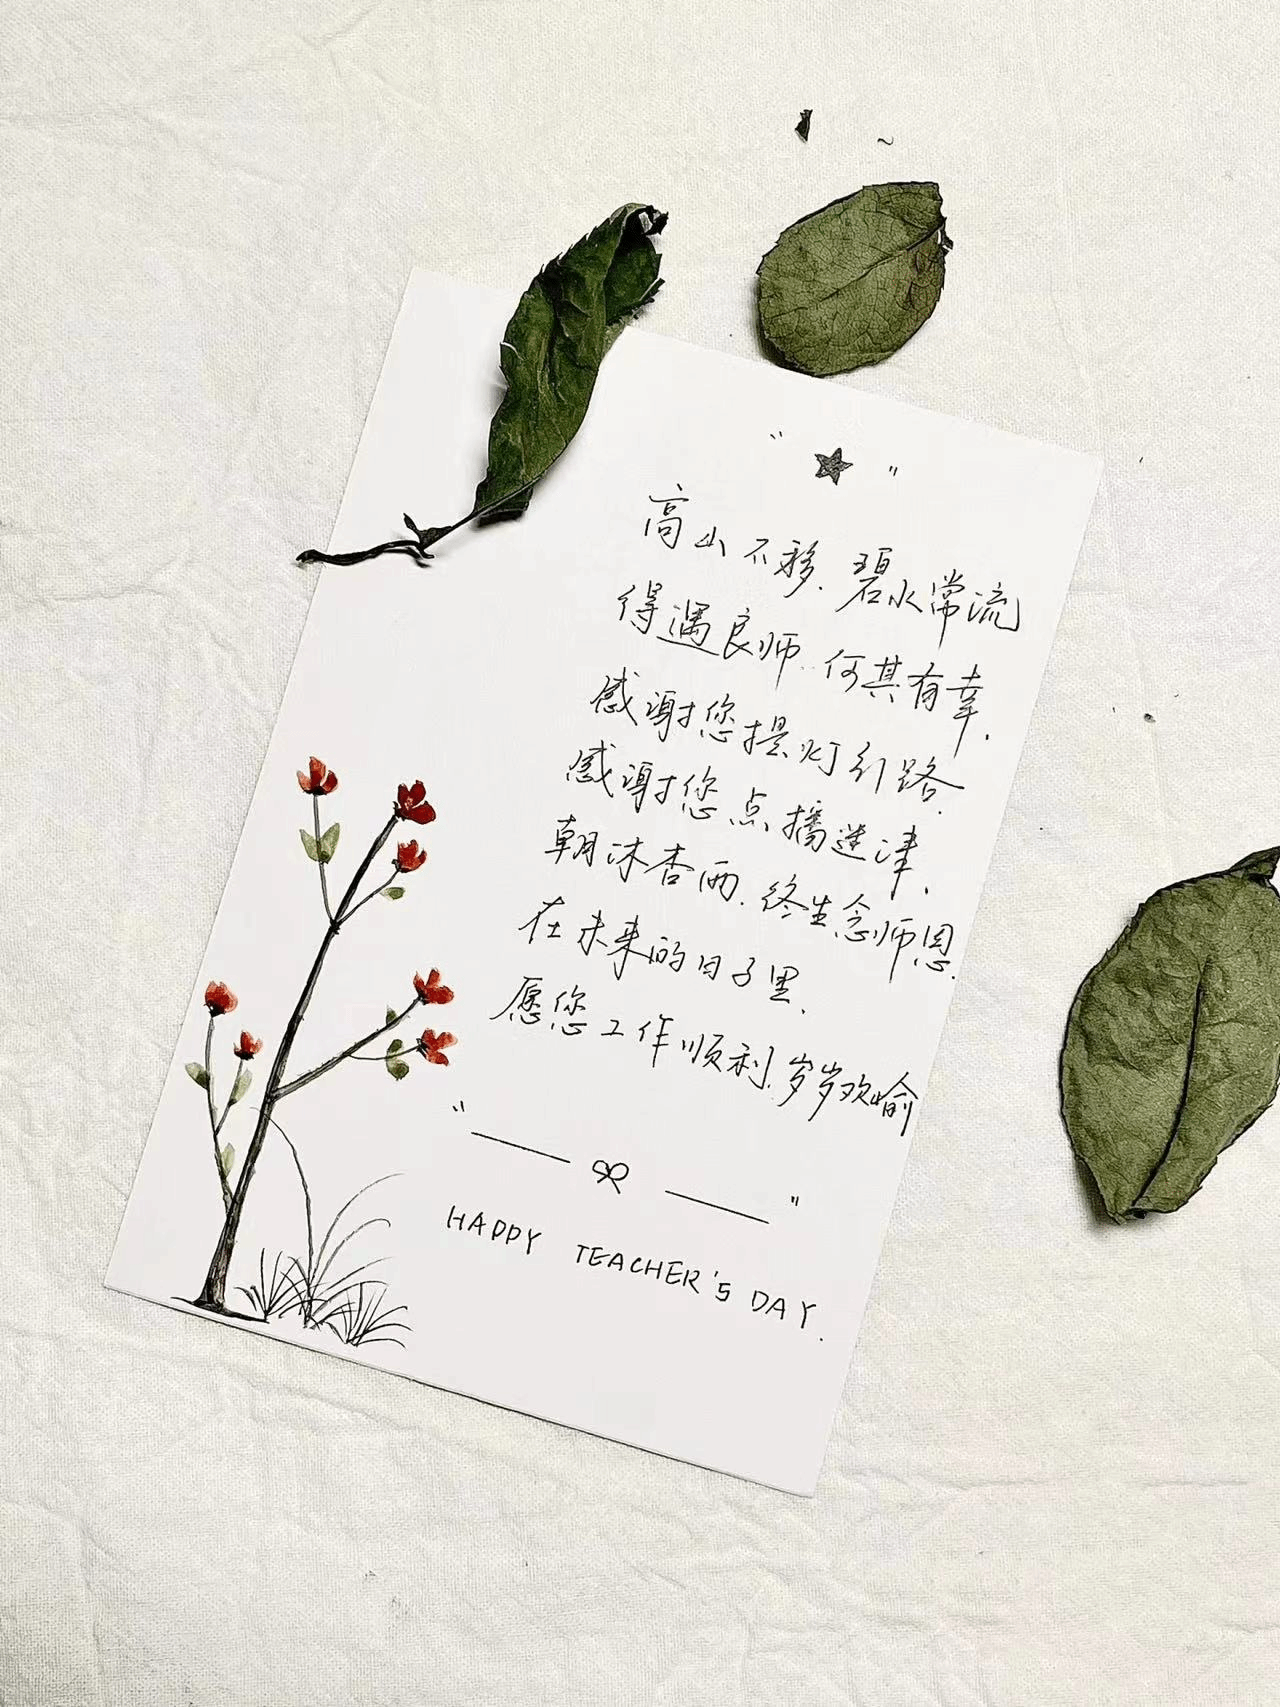 高山不移.碧水常流
得遇良师..何其有幸.
感谢您提灯引路.
感谢您点播迷津.
朝沐杏雨.终生念师恩.
在未来的日子里.
愿您工作顺利.岁岁欢愉
HAPPY TEACHER's DAY.